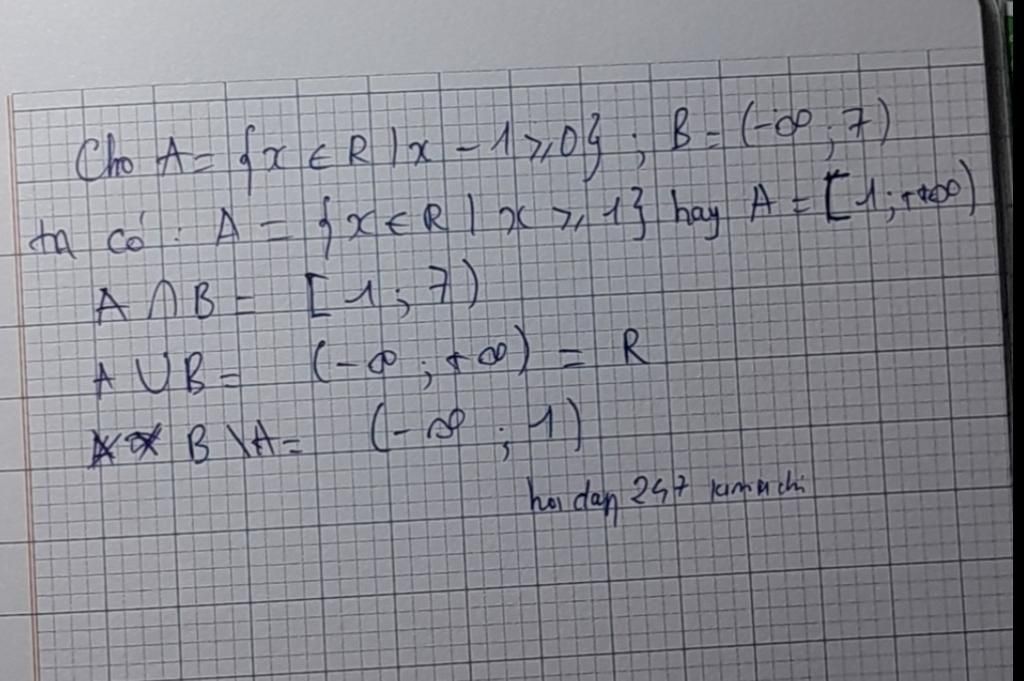 Cho A = {x ∈ R | x - 1 ⩾ 0} ; B = (-∞ ; 7)
ta có : A = {x ∈ R | x ⩾ 1} hay A = [1 ; +∞)
A ∩ B = [1 ; 7)
A ∪ B = (-∞ ; +∞) = R
B \ A = (-∞ ; 1)
hoi dap 247